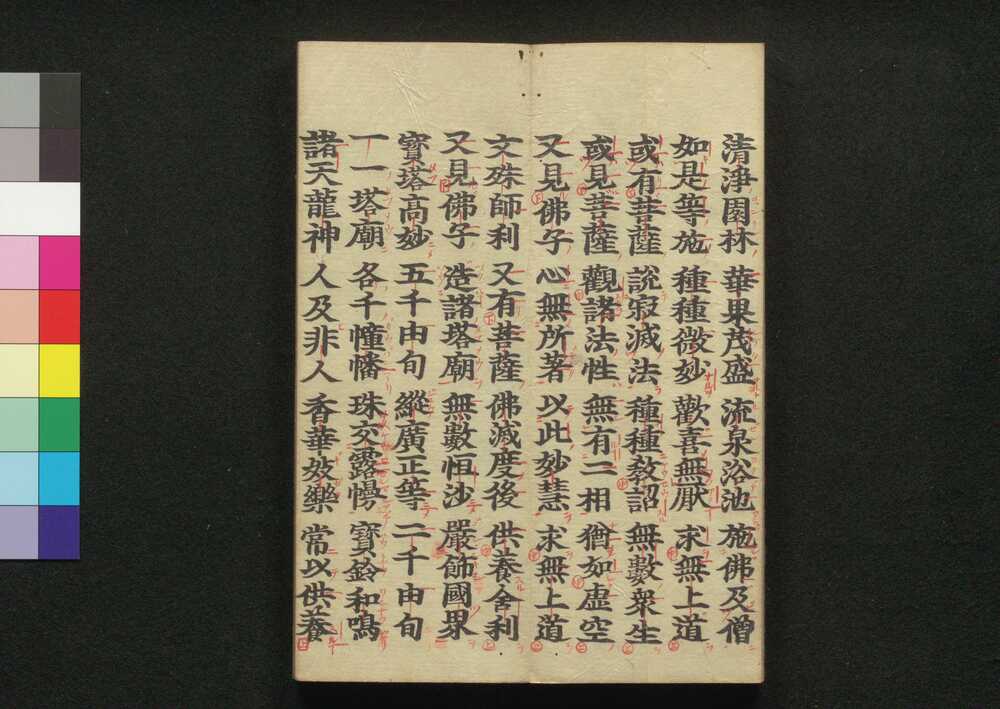 清淨園林 華果茂盛 流泉浴池 施佛及僧
如是等施 種種微妙 歡喜無厭 求無上道
或有菩薩 說寂滅法 種種敎詔 無數衆生
或見菩薩 觀諸法性 無有二相 猶如虛空
又見佛子 心無所著 以此妙慧 求無上道
文殊師利 又有菩薩 佛滅度後 供養舍利
又見佛子 造諸塔廟 無數恒沙 嚴飾國界
寶塔高妙 五千由旬 縱廣正等 二千由旬
一一塔廟 各千幢幡 珠交露幔 寶鈴和鳴
諸天龍神 人及非人 香華妓樂 常以供養